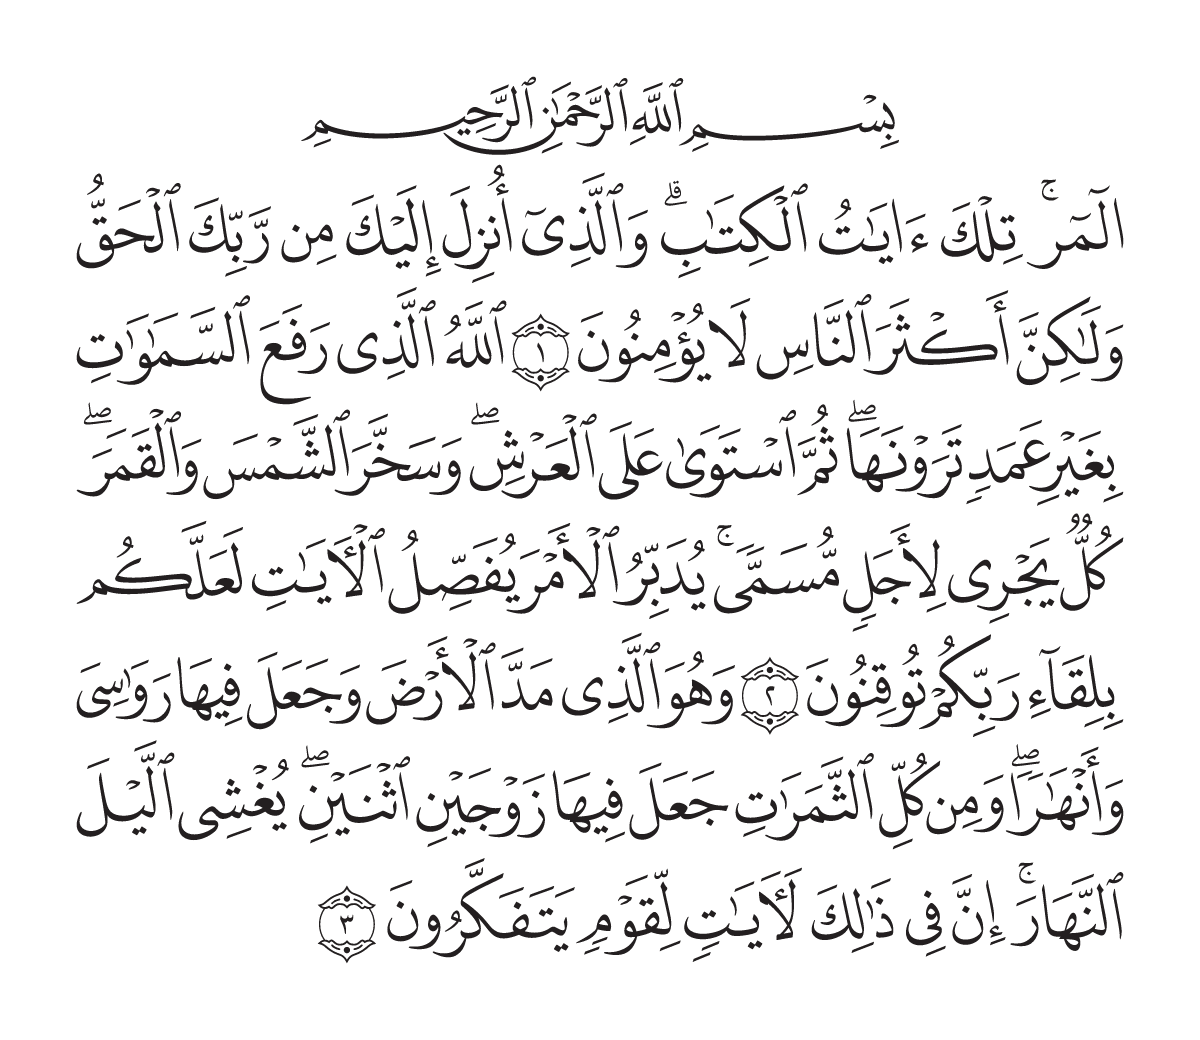 بِسْمِ ٱللَّهِ ٱلرَّحْمَٰنِ ٱلرَّحِيمِ
الٓمٓرۚ تِلْكَ ءَايَٰتُ ٱلْكِتَٰبِۗ وَٱلَّذِىٓ أُنزِلَ إِلَيْكَ مِن رَّبِّكَ ٱلْحَقُّ
وَلَٰكِنَّ أَكْثَرَ ٱلنَّاسِ لَا يُؤْمِنُونَ ١ ٱللَّهُ ٱلَّذِى رَفَعَ ٱلسَّمَٰوَٰتِ
بِغَيْرِ عَمَدٍ تَرَوْنَهَاۖ ثُمَّ ٱسْتَوَىٰ عَلَى ٱلْعَرْشِۖ وَسَخَّرَ ٱلشَّمْسَ وَٱلْقَمَرَۖ
كُلٌّ يَجْرِى لِأَجَلٍ مُّسَمًّىۚ يُدَبِّرُ ٱلْأَمْرَ يُفَصِّلُ ٱلْأَيَٰتِ لَعَلَّكُم
بِلِقَآءِ رَبِّكُمْ تُوقِنُونَ ٢ وَهُوَ ٱلَّذِى مَدَّ ٱلْأَرْضَ وَجَعَلَ فِيهَا رَوَٰسِىَ
وَأَنْهَٰرًاۖ وَمِن كُلِّ ٱلثَّمَرَٰتِ جَعَلَ فِيهَا زَوْجَيْنِ ٱثْنَيْنِۖ يُغْشِى ٱلَّيْلَ
ٱلنَّهَارَۚ إِنَّ فِى ذَٰلِكَ لَأَيَٰتٍ لِّقَوْمٍ يَتَفَكَّرُونَ ٣